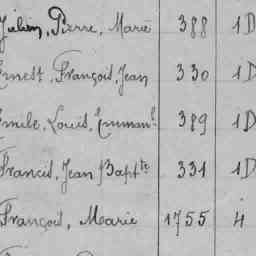 Julien, Pierre, Marie 388 1D
Ernest, François, Jean 330 1D
Emile, Louis, Emman^l 389 1D
Francis, Jean Bapt^te 331 1D
François, Marie 1755 4